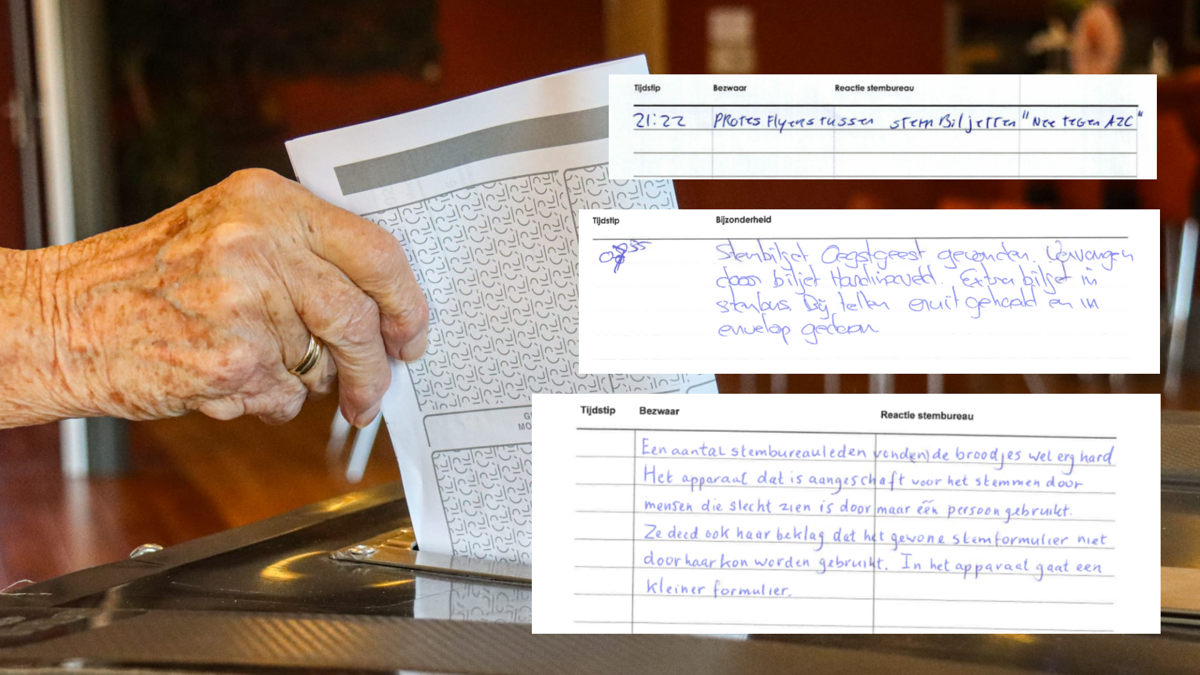 Tijdstip Bezwaar Reactie stembureau
21:22 Protes Flyers tussen stemBiljetten "Nee tegen AZC"
Tijdstip Bijzonderheid
Stembiljet Oegstgeest gevonden. Vervangen
door biljet Extra biljet in
stembus. Bij tellen eruit gehaald en in
envelop gedaan
Tijdstip Bezwaar Reactie stembureau
Een aantal stembureauleden vonden de broodjes wel erg hard
Het apparaat dat is aangeschaft voor het stemmen door
mensen die slecht zien is door maar één persoon gebruikt.
Ze deed ook haar beklag dat het gewone stemformulier niet
door haar kon worden gebruikt. In het apparaat gaat een
kleiner formulier.